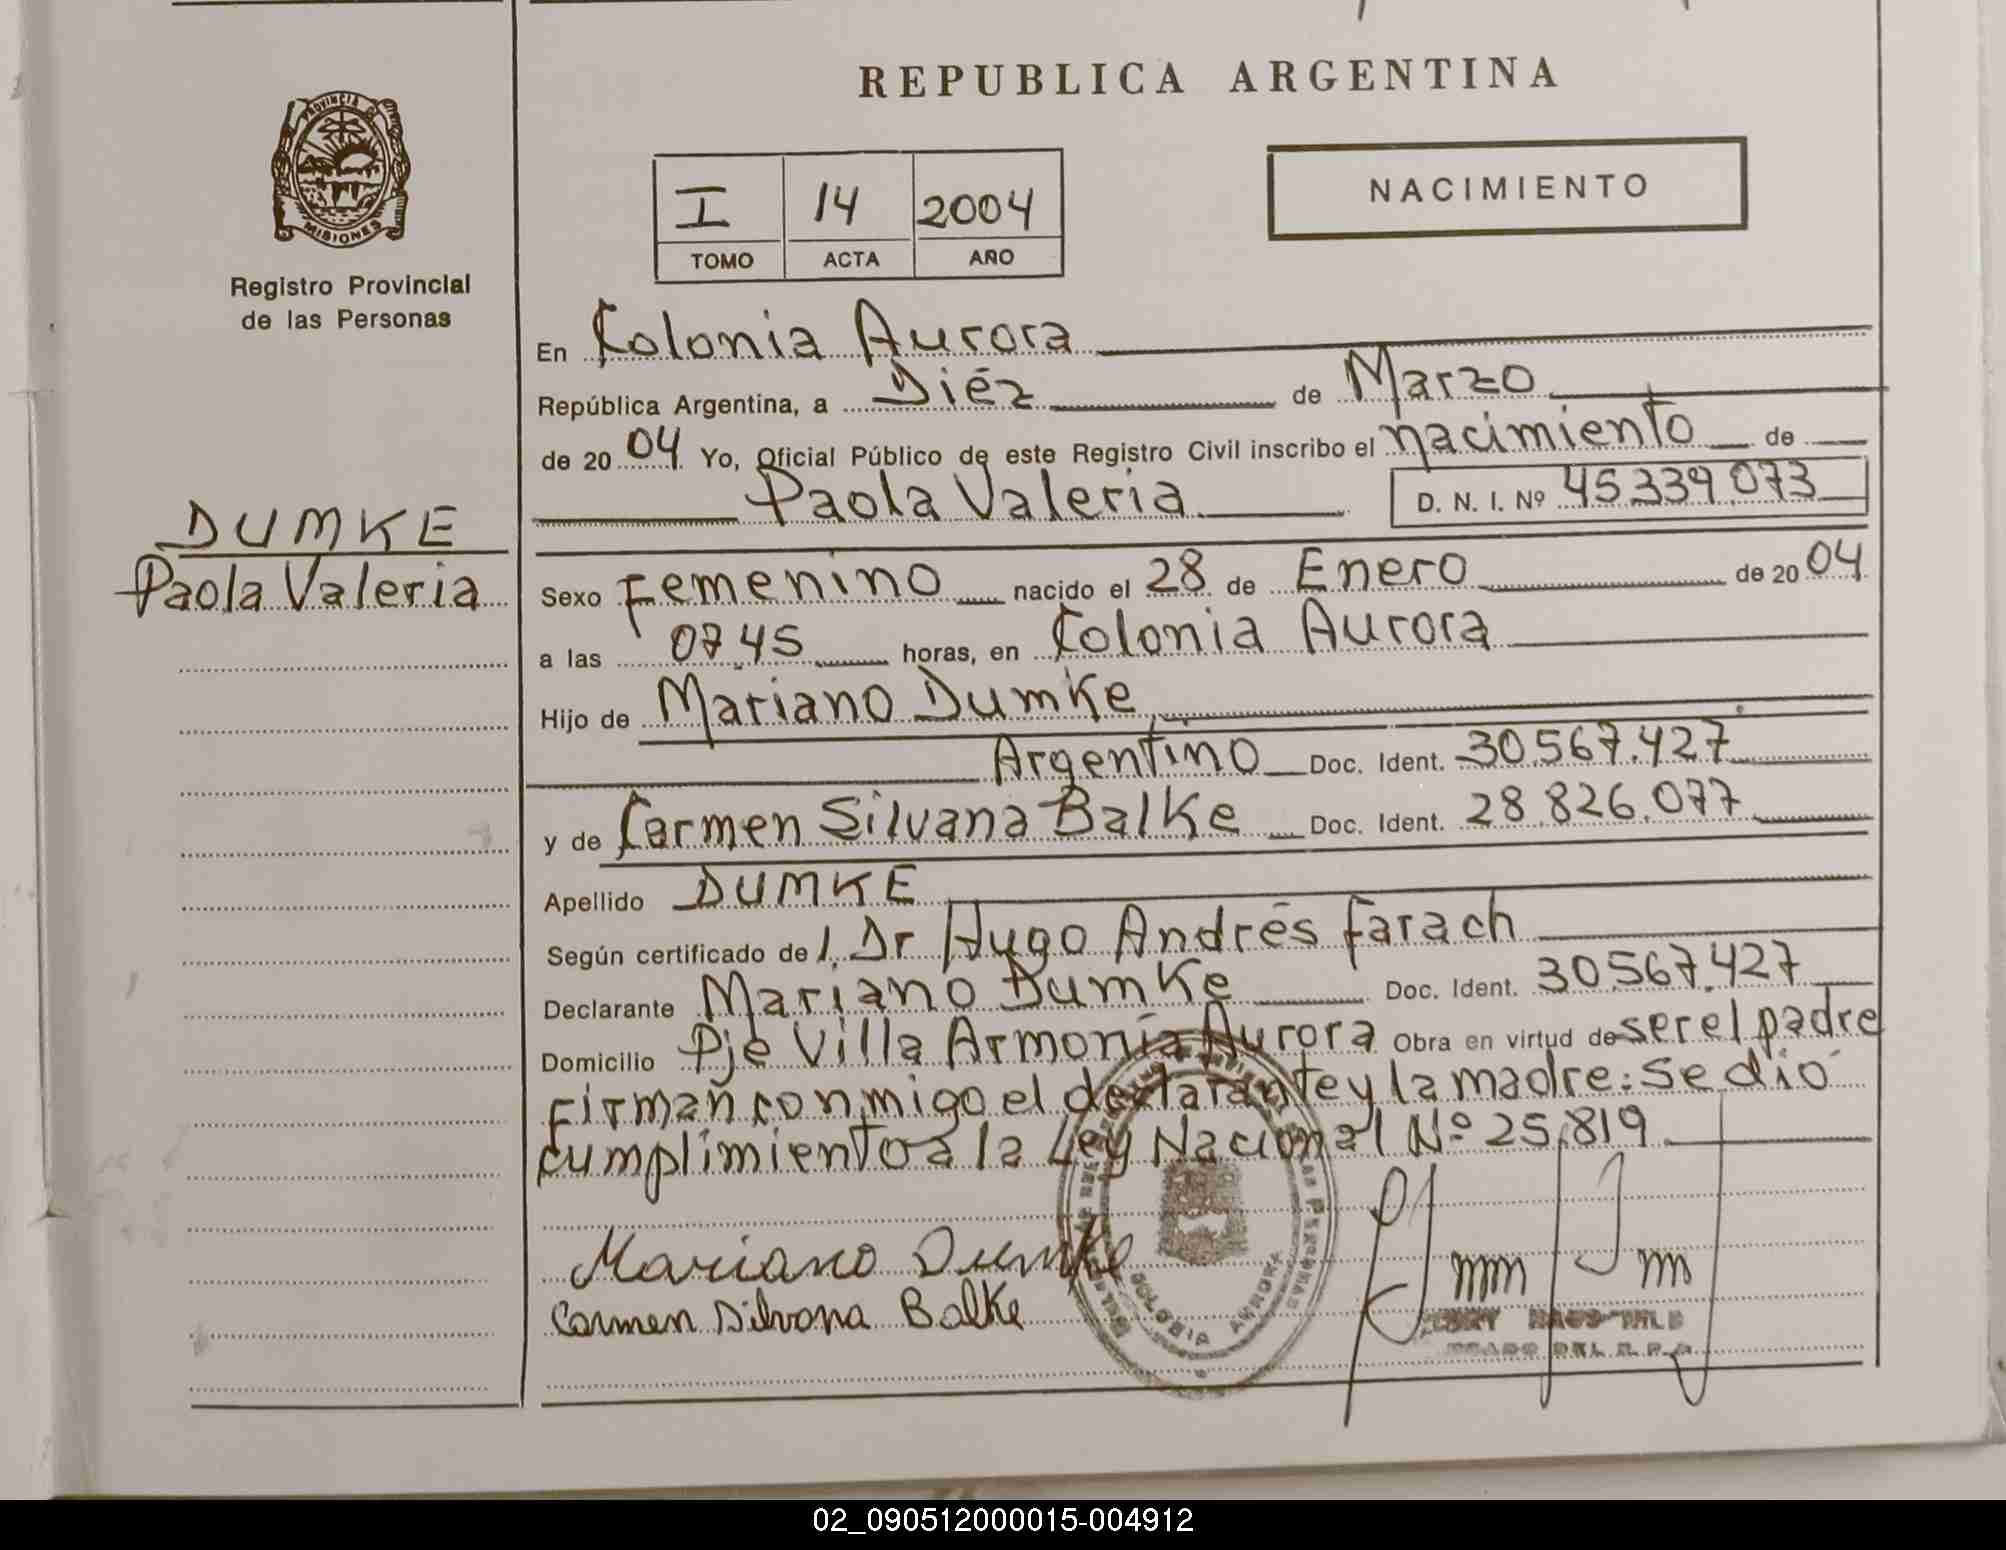 REPUBLICA ARGENTINA
PROVINCIA
MISIONES
Registro Provincial
de las Personas
I 14 2004
TOMO ACTA AÑO
NACIMIENTO
En Colonia Aurora
República Argentina, a Diéz de Marzo
de 2004 Yo, Oficial Público de este Registro Civil inscribo el nacimiento de
Paola Valeria D. N. I. Nº 45.339.073
DUMKE
Paola Valeria
Sexo Femenino nacido el 28 de Enero de 2004
a las 07.45 horas, en Colonia Aurora
Hijo de Mariano Dumke
Argentino Doc. Ident. 30.567.427
y de Carmen Silvana Balke Doc. Ident. 28.826.077
Apellido DUMKE
Según certificado de l. Dr Hugo Andrés Farach
Declarante Mariano Dumke Doc. Ident. 30.567.427
Domicilio Pje Villa Armonía Aurora Obra en virtud de ser el padre
Firman conmigo el declarante y la madre: Se dió
cumplimiento a la Ley Nacional Nº 25.819
Mariano Dumke
Carmen Silvana Balke
COLONIA AURORA
DEL R.P.
02_090512000015-004912